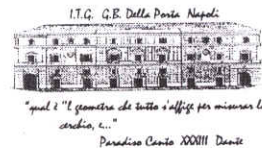 I.T.G. G.B. Della Porta Napoli
"qual è 'l geometra che tutto s'affige per misurar l
cerchio, e..."
Paradiso Canto XXXIII Dante